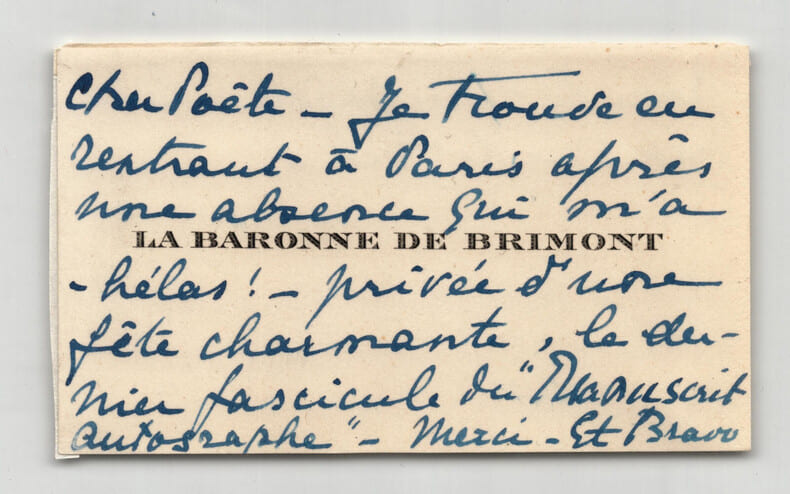 Cher Poête – Je trouve en
rentrant à Paris après
une absence qui m'a
LA BARONNE DE BRIMONT
- hélas ! – privée d'une
fête charmante, le der-
nier fascicule du "Manuscrit
autographe" – Merci – Et Bravo